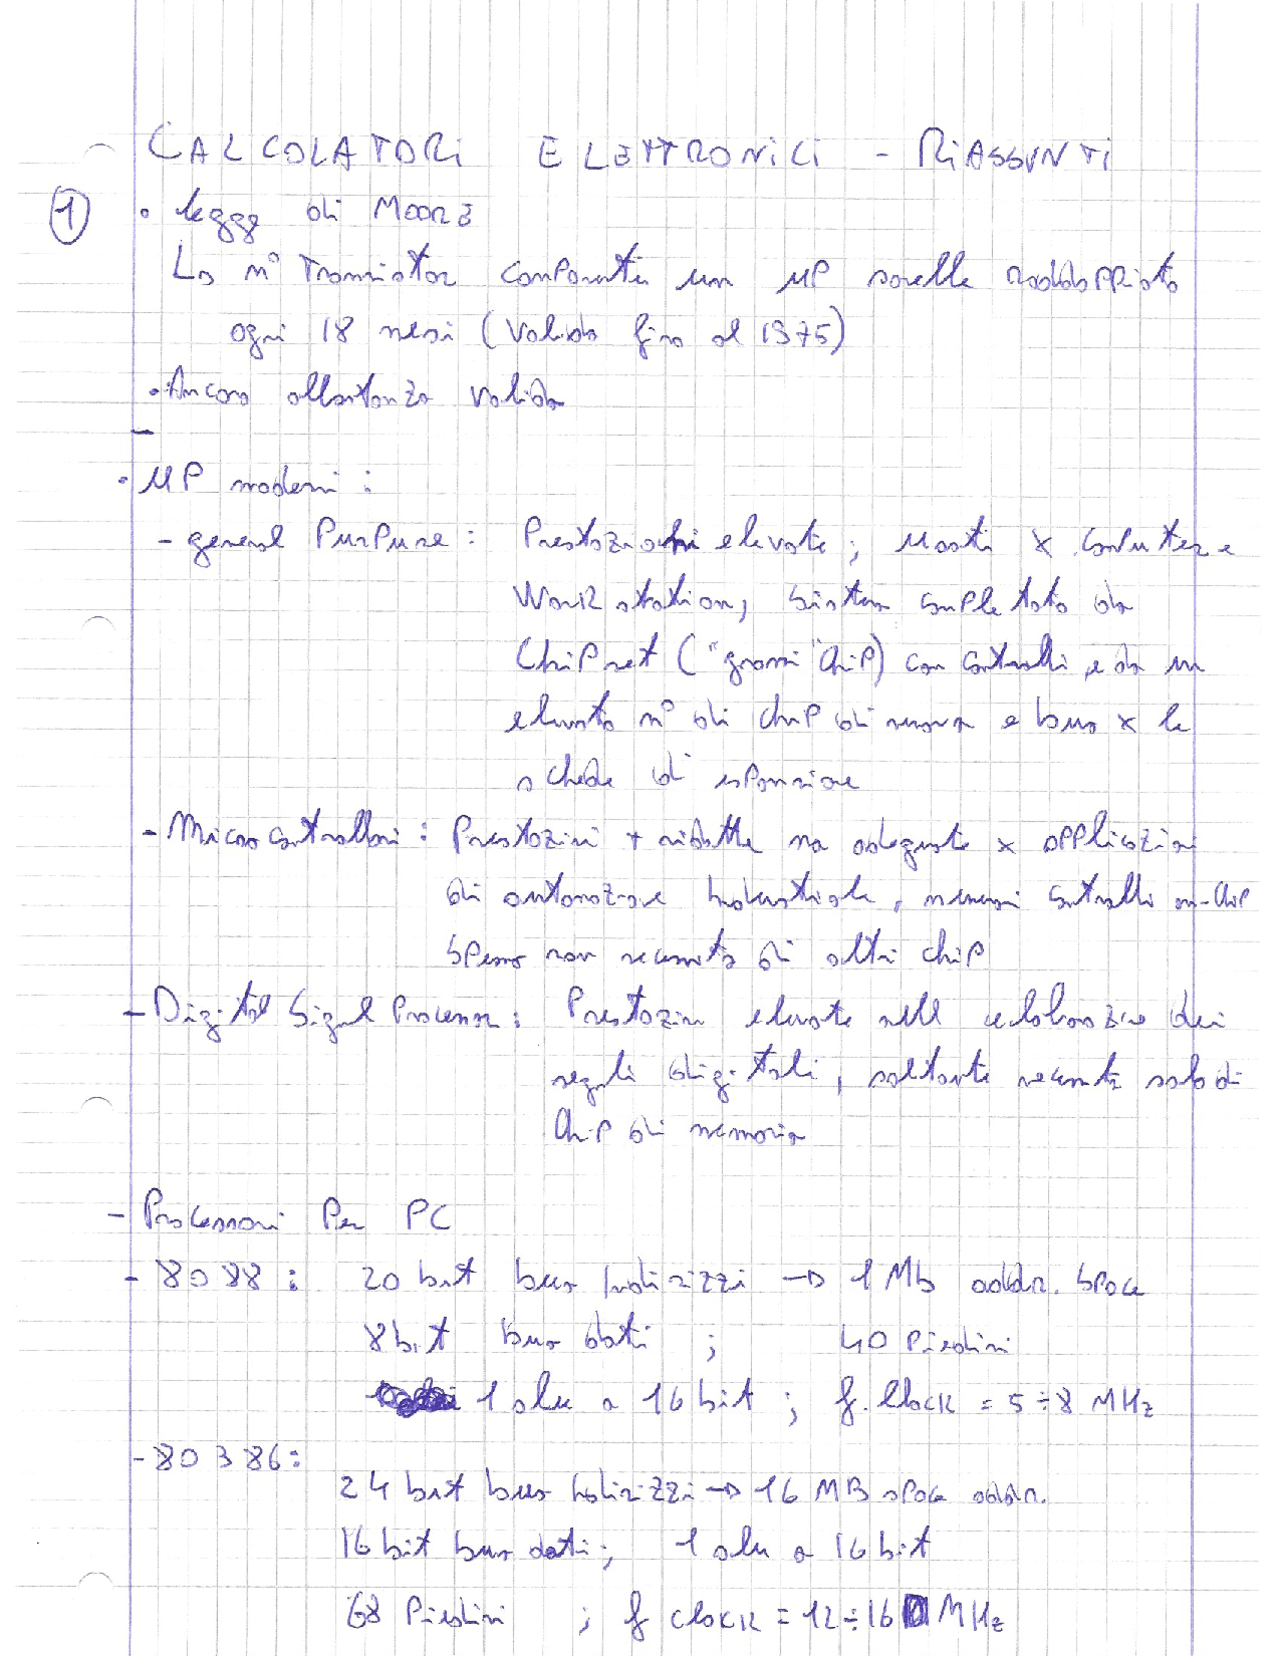 CALCOLATORI ELETTRONICI - RIASSUNTI
1 • legge di Moore
Lo n° Transistor componenti un μP sarebbe raddoppiato
ogni 18 mesi (valida fino al 1975)
• Ancora abbastanza valida
-
• μP moderni :
- general Purpuse : Prestazioni elevate ; usati x computer e
Workstation, sistema completato da
Chipset ("grossi" chip) con controlli, e da un
elevato n° di chip di memoria e bus x le
schede di espansione
- Microcontrollori : Prestazioni + ridotte ma adeguate x applicazioni
di automazione industriale, memorie controlli on-chip
spesso non necessita di altri chip
- Digital Signal Processor : Prestazioni elevate nell elaborazione dei
segnali digitali, soltanto necessita solo di
chip di memoria
- Processori Per PC
- 8088 : 20 bit bus indirizzi → 1 Mb addr. space
8 bit bus dati ; 40 Piedini
1 alu a 16 bit ; f. clock = 5÷8 MHz
- 80386 :
24 bit bus indirizzi → 16 MB space addr.
16 bit bus dati ; 1 alu a 16 bit
68 Piedini ; f clock = 12÷16 MHz